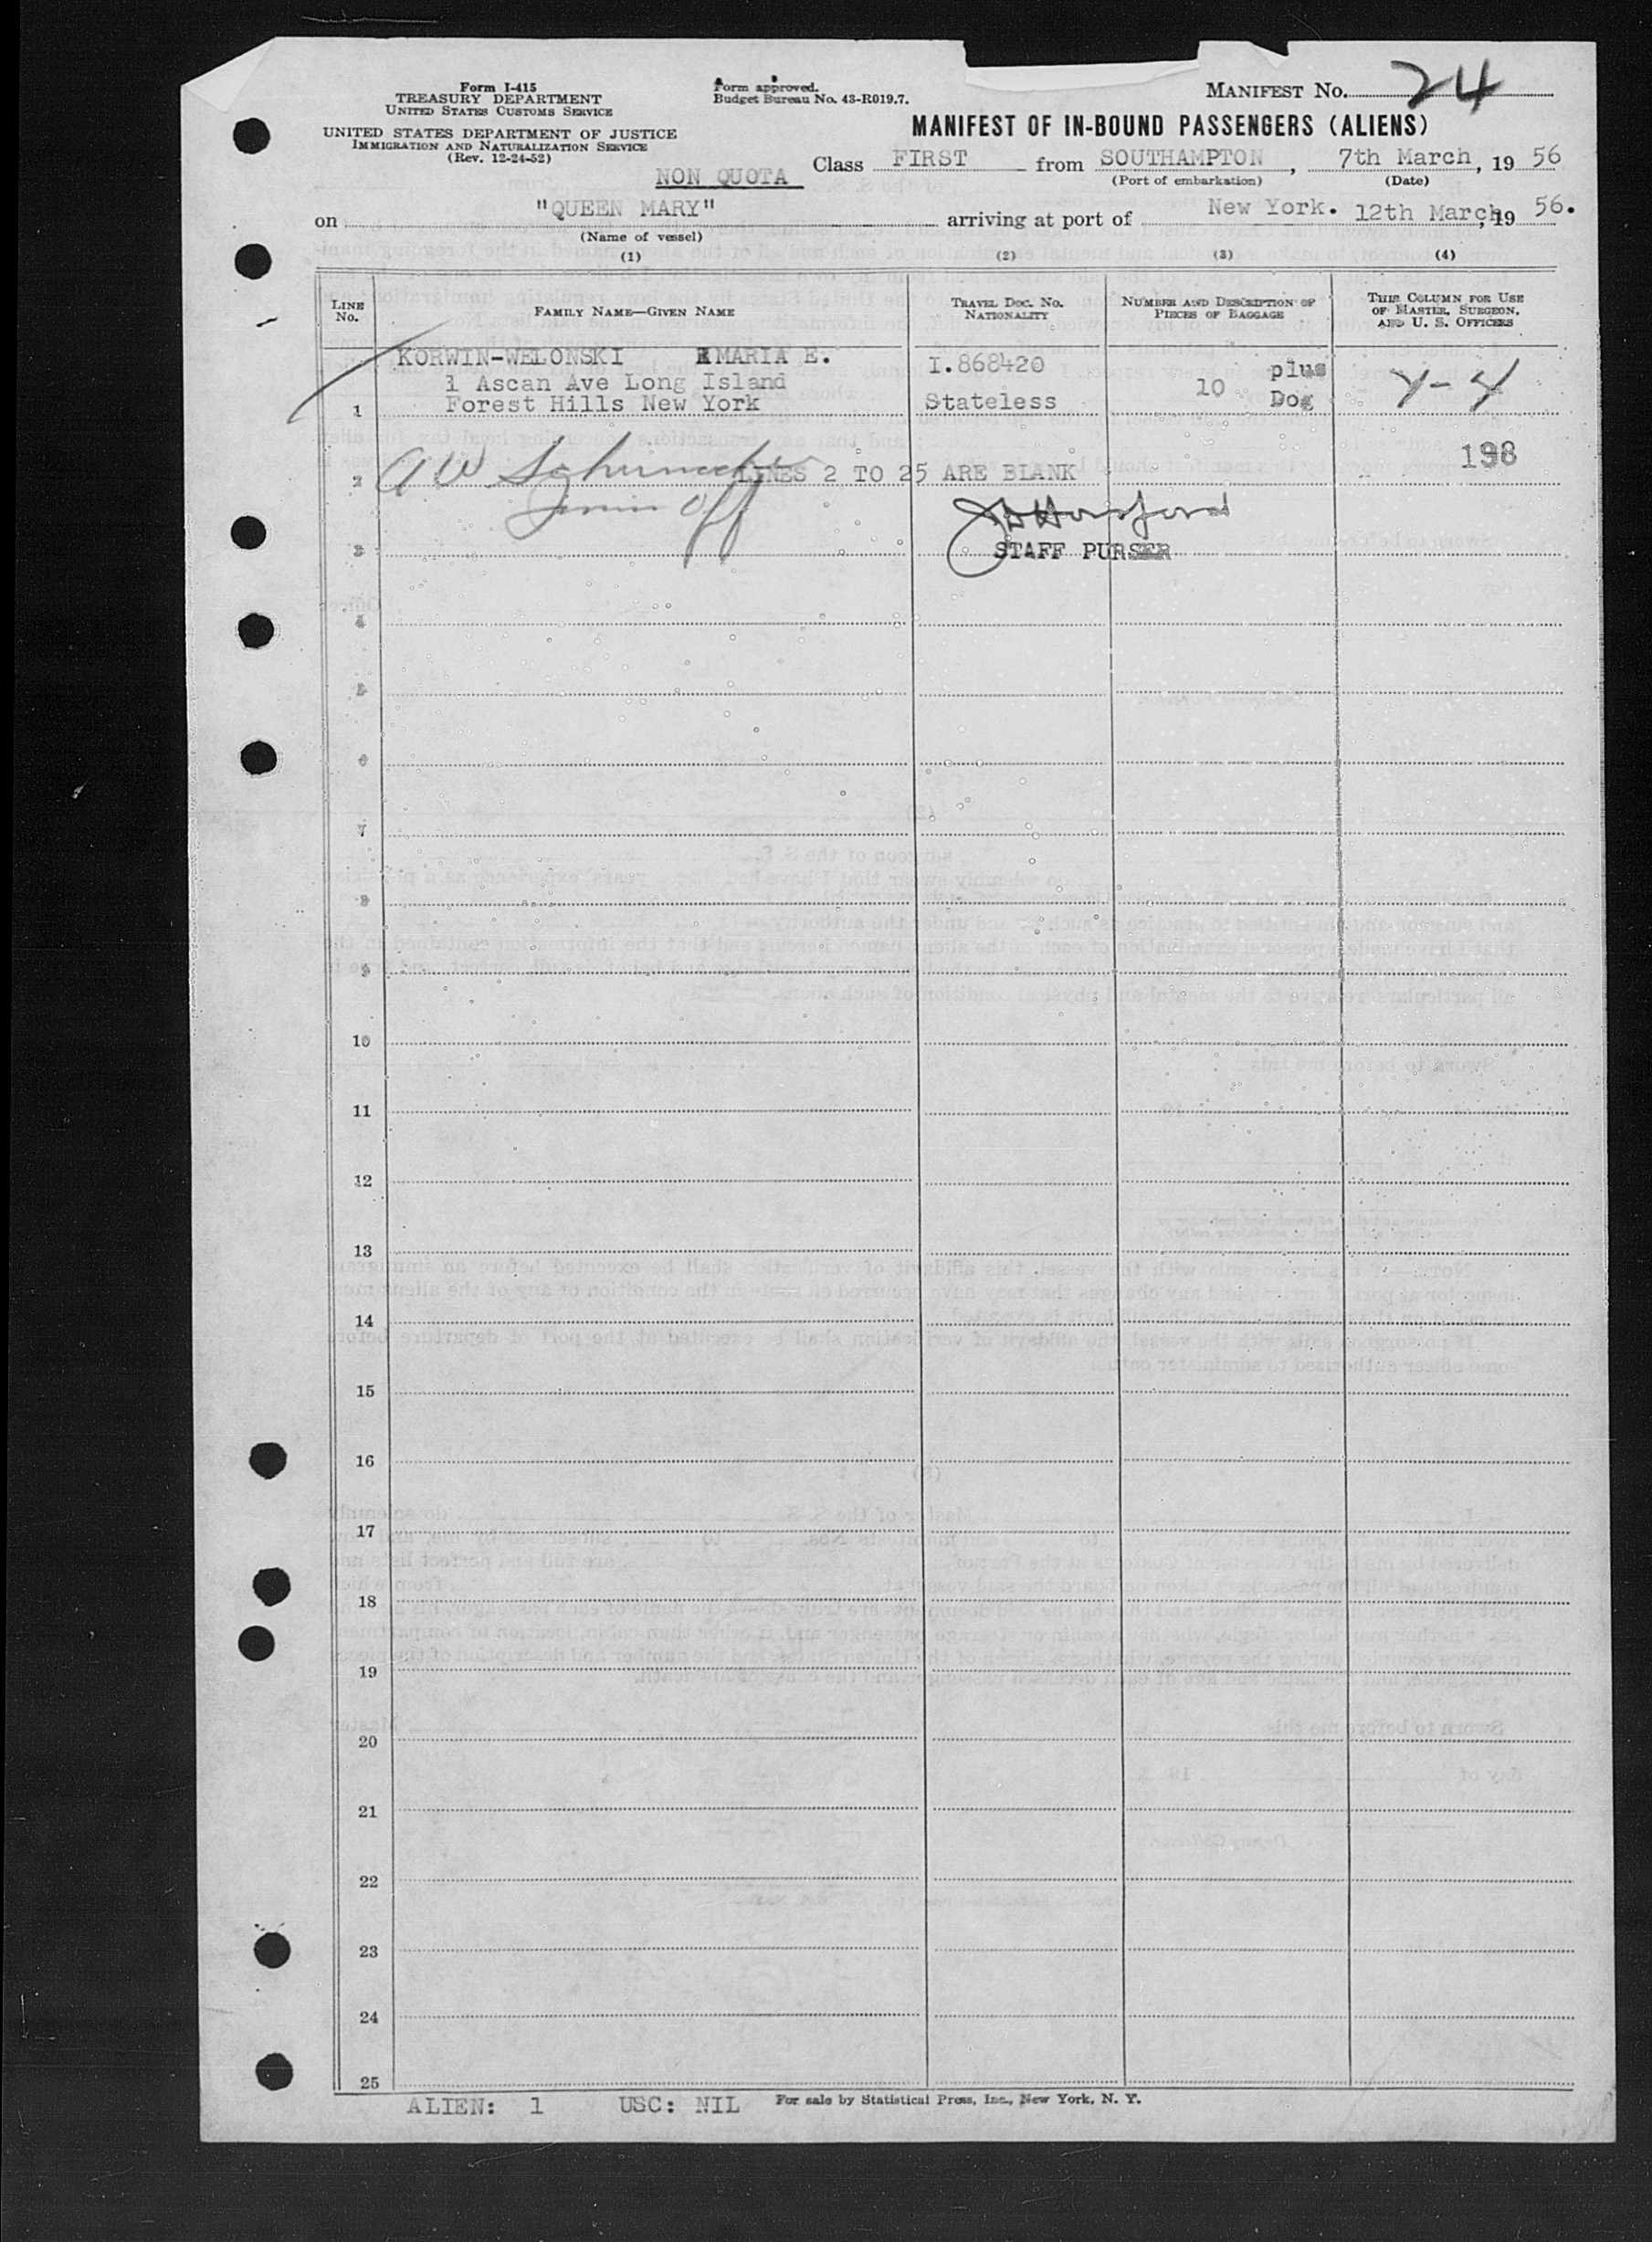 Form I-415
TREASURY DEPARTMENT
UNITED STATES CUSTOMS SERVICE
UNITED STATES DEPARTMENT OF JUSTICE
IMMIGRATION AND NATURALIZATION SERVICE
(Rev. 12-24-52)
Form approved.
Budget Bureau No. 43-R019.7.
MANIFEST No. 24
MANIFEST OF IN-BOUND PASSENGERS (ALIENS)
NON QUOTA
Class FIRST from SOUTHAMPTON, 7th March, 19 56
(Port of embarkation) (Date)
on "QUEEN MARY" arriving at port of New York. 12th March, 19 56.
(Name of vessel)
(1) (2) (3) (4)
LINE No. FAMILY NAME—GIVEN NAME TRAVEL DOC. NO. NATIONALITY NUMBER AND DESCRIPTION OF PIECES OF BAGGAGE THIS COLUMN FOR USE OF MASTER, SURGEON, AND U. S. OFFICERS
KORWIN-WELONSKI MARIA E. I.868420 plus
1 Ascan Ave Long Island 10
1 Forest Hills New York Stateless Dog
198
2 LINES 2 TO 25 ARE BLANK
3 STAFF PURSER
4
5
6
7
8
9
10
11
12
13
14
15
16
17
18
19
20
21
22
23
24
25
ALIEN: 1 USC: NIL For sale by Statistical Press, Inc., New York, N. Y.